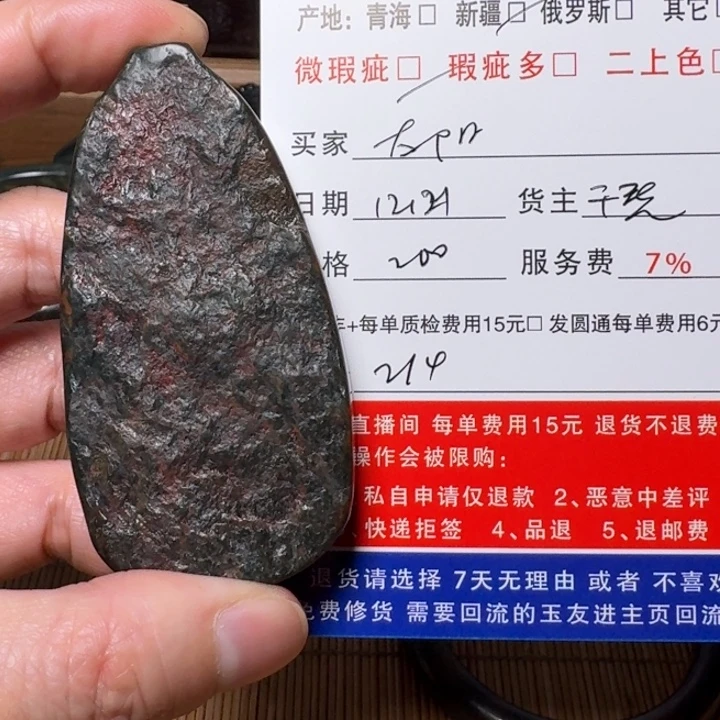 产地：青海□ 新疆□ 俄罗斯□ 其它
微瑕疵□ 瑕疵多□ 二上色
买家
日期 12.21 货主
格 200 服务费 7%
+每单质检费用15元□ 发圆通每单费用6元
214
直播间 每单费用15元 退货不退费
操作会被限购：
私自申请仅退款 2、恶意中差评
快递拒签 4、品退 5、退邮费
退货请选择 7天无理由 或者 不喜欢
免费修货 需要回流的玉友进主页回流